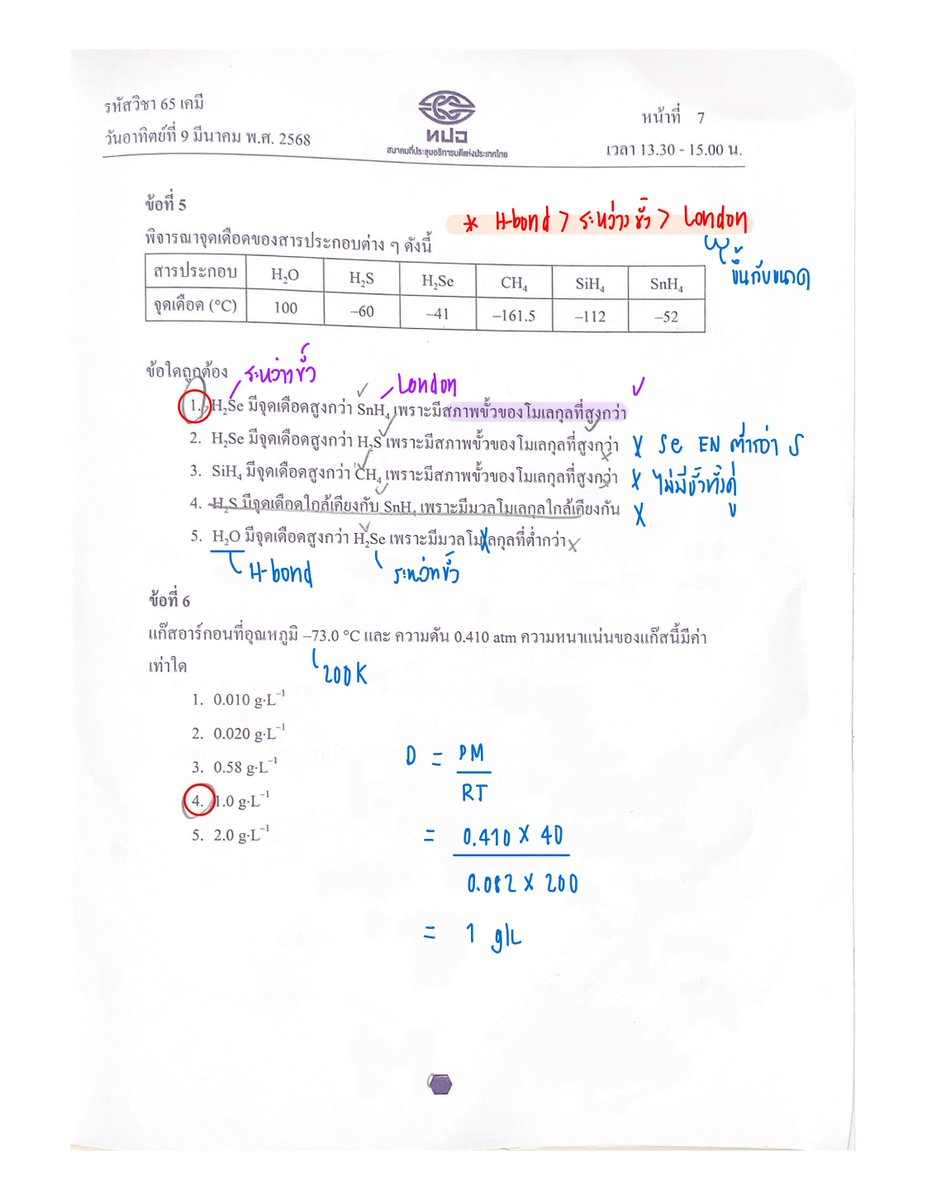 รหัสวิชา 65 เคมี
วันอาทิตย์ที่ 9 มีนาคม พ.ศ. 2568
ทปอ
สมาคมที่ประชุมอธิการบดีแห่งประเทศไทย
หน้าที่ 7
เวลา 13.30 - 15.00 น.
ข้อที่ 5
* H-bond > ระหว่างขั้ว > London
ขึ้นกับขนาด
พิจารณาจุดเดือดของสารประกอบต่าง ๆ ดังนี้
สารประกอบ H₂O H₂S H₂Se CH₄ SiH₄ SnH₄
จุดเดือด (°C) 100 –60 –41 –161.5 –112 –52
ข้อใดถูกต้อง
ระหว่างขั้ว London
1. H₂Se มีจุดเดือดสูงกว่า SnH₄ เพราะมีสภาพขั้วของโมเลกุลที่สูงกว่า ✓
2. H₂Se มีจุดเดือดสูงกว่า H₂S เพราะมีสภาพขั้วของโมเลกุลที่สูงกว่า X Se EN ต่ำกว่า S
3. SiH₄ มีจุดเดือดสูงกว่า CH₄ เพราะมีสภาพขั้วของโมเลกุลที่สูงกว่า X ไม่มีขั้วทั้งคู่
4. H₂S มีจุดเดือดใกล้เคียงกับ SnH₄ เพราะมีมวลโมเลกุลใกล้เคียงกัน X
5. H₂O มีจุดเดือดสูงกว่า H₂Se เพราะมีมวลโมเลกุลที่ต่ำกว่า X
H-bond ระหว่างขั้ว
ข้อที่ 6
แก๊สอาร์กอนที่อุณหภูมิ –73.0 °C และ ความดัน 0.410 atm ความหนาแน่นของแก๊สนี้มีค่า
เท่าใด
200K
1. 0.010 g·L⁻¹
2. 0.020 g·L⁻¹
3. 0.58 g·L⁻¹
4. 1.0 g·L⁻¹
5. 2.0 g·L⁻¹
D = PM
RT
= 0.410 X 40
0.082 X 200
= 1 g/L